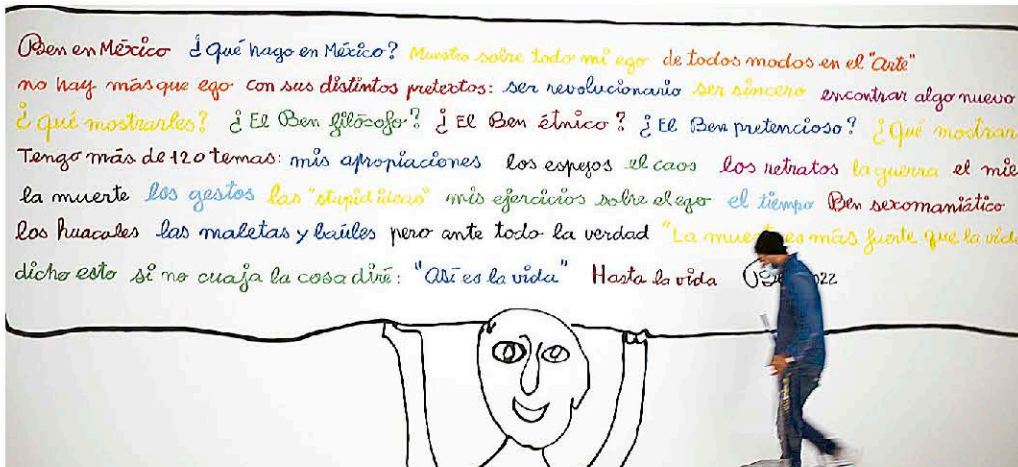 Ben en México ¿Qué hago en México? Muestro sobre todo mi ego de todos modos en el "Arte"
no hay más que ego con sus distintos pretextos: ser revolucionario ser sincero encontrar algo nuevo
¿qué mostrarles? ¿El Ben filócofo? ¿El Ben étnico? ¿El Ben pretencioso? ¿Qué mostrar
Tengo más de 120 temas: mis apropiaciones los espejos el caos los retratos la guerra el mie
la muerte los gestos las "stupid ideas" mis ejercicios sobre el ego el tiempo Ben sexomaniático
los huacales las maletas y baúles pero ante todo la verdad "La muerte es más fuerte que la vida
dicho esto si no cuaja la cosa diré: "Así es la vida" Hasta la vida